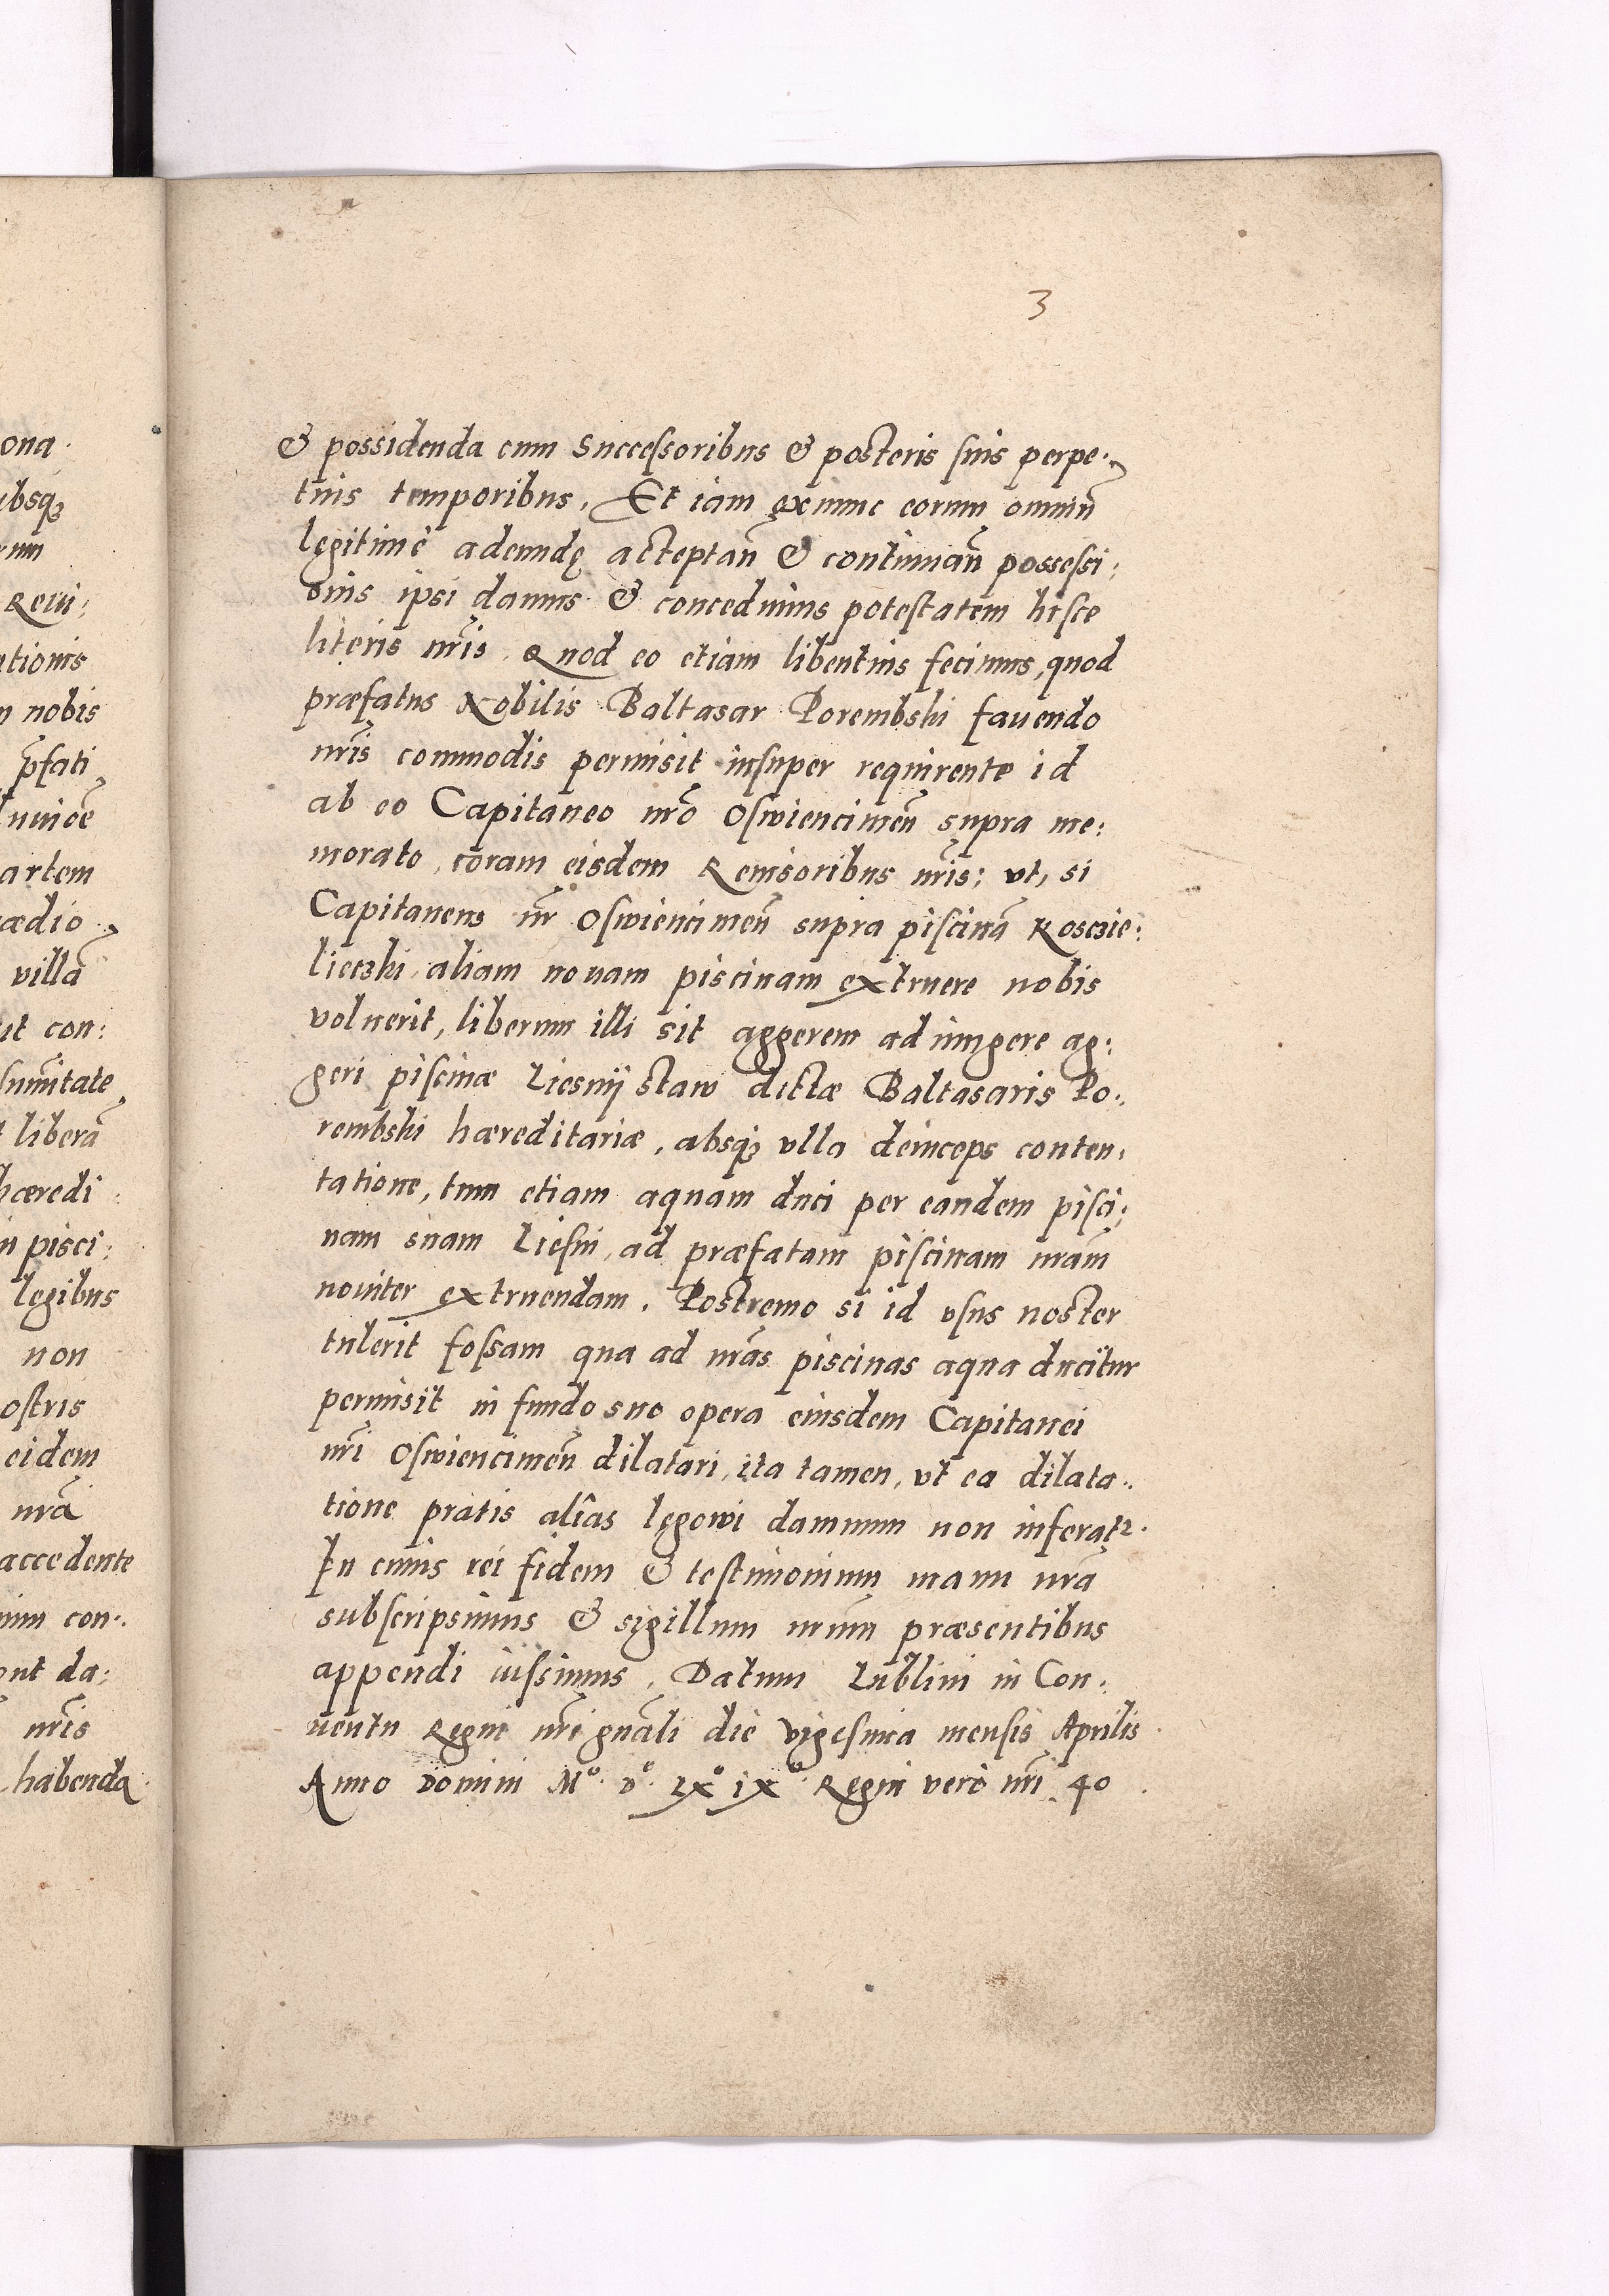 3
& possidenda cum Successoribus & posteris suis perpe.
tuis temporibus. Et iam ex nunc eorum omniũ
legitimè adeundę acceptan̄ & continuan̄ possessi:
onis ipsi damus & concedimus potestatem hisce
literis nr̄is. Quod eo etiam libentius fecimus, quod
præfatus Nobilis Baltasar Porembski fauendo
nr̄is commodis permisit insuper requirente id
ab eo Capitaneo nrō Oswiencimen̄ supra me:
morato, coram eisdem Reuisoribus nr̄is: vt, si
Capitaneus nr̄ Oswiencimen̄ supra piscinā Koscie:
lieczki aliam nouam piscinam extruere nobis
voluerit, liberum illi sit aggerem adiungere ag:
geri piscinæ Liesnij staw dictæ Baltasaris Po..
rembski hæreditariæ, absq́ȝ vlla deinceps conten:
tatione, tum etiam aquam duci per eandem pisci:
nam suam Liesni, ad præfatam piscinam nrām
nouiter extruendam. Postremo si id vsus noster
tulerit fossam qua ad nrās piscinas aqua ducitur
permisit in fundo suo opera eiusdem Capitanei
nr̄i Oswiencimen̄ dilatari, ita tamen, vt ea dilata..
tione pratis aliâs lęgowi damnum non inferatr.
In cuius rei fidem & testimonium manu nrā
subscripsimus & sigillum nrūm præsentibus
appendi iussimus. Datum Lublini in Con:
uentu Regni nr̄i gnāli die vigesima mensis Aprilis.
Anno Domini M° D° LX° IX° Regni vero nr̄i 40.
ona.
ibsq́ȝ
rum
Reui:
ationis
nobis
p̄fati
artem
ædio
villā
ut con:
liberā
hæredi
pisci:
legibus
non
ostris
eidem
nrā
accedente
con..
da:
nr̄is
habenda